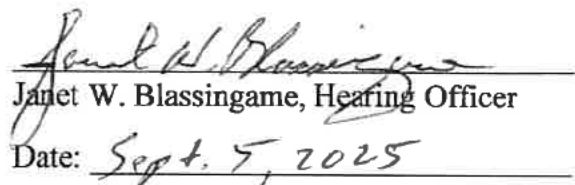 Janet W. Blassingame
Janet W. Blassingame, Hearing Officer
Date: Sept. 5, 2025